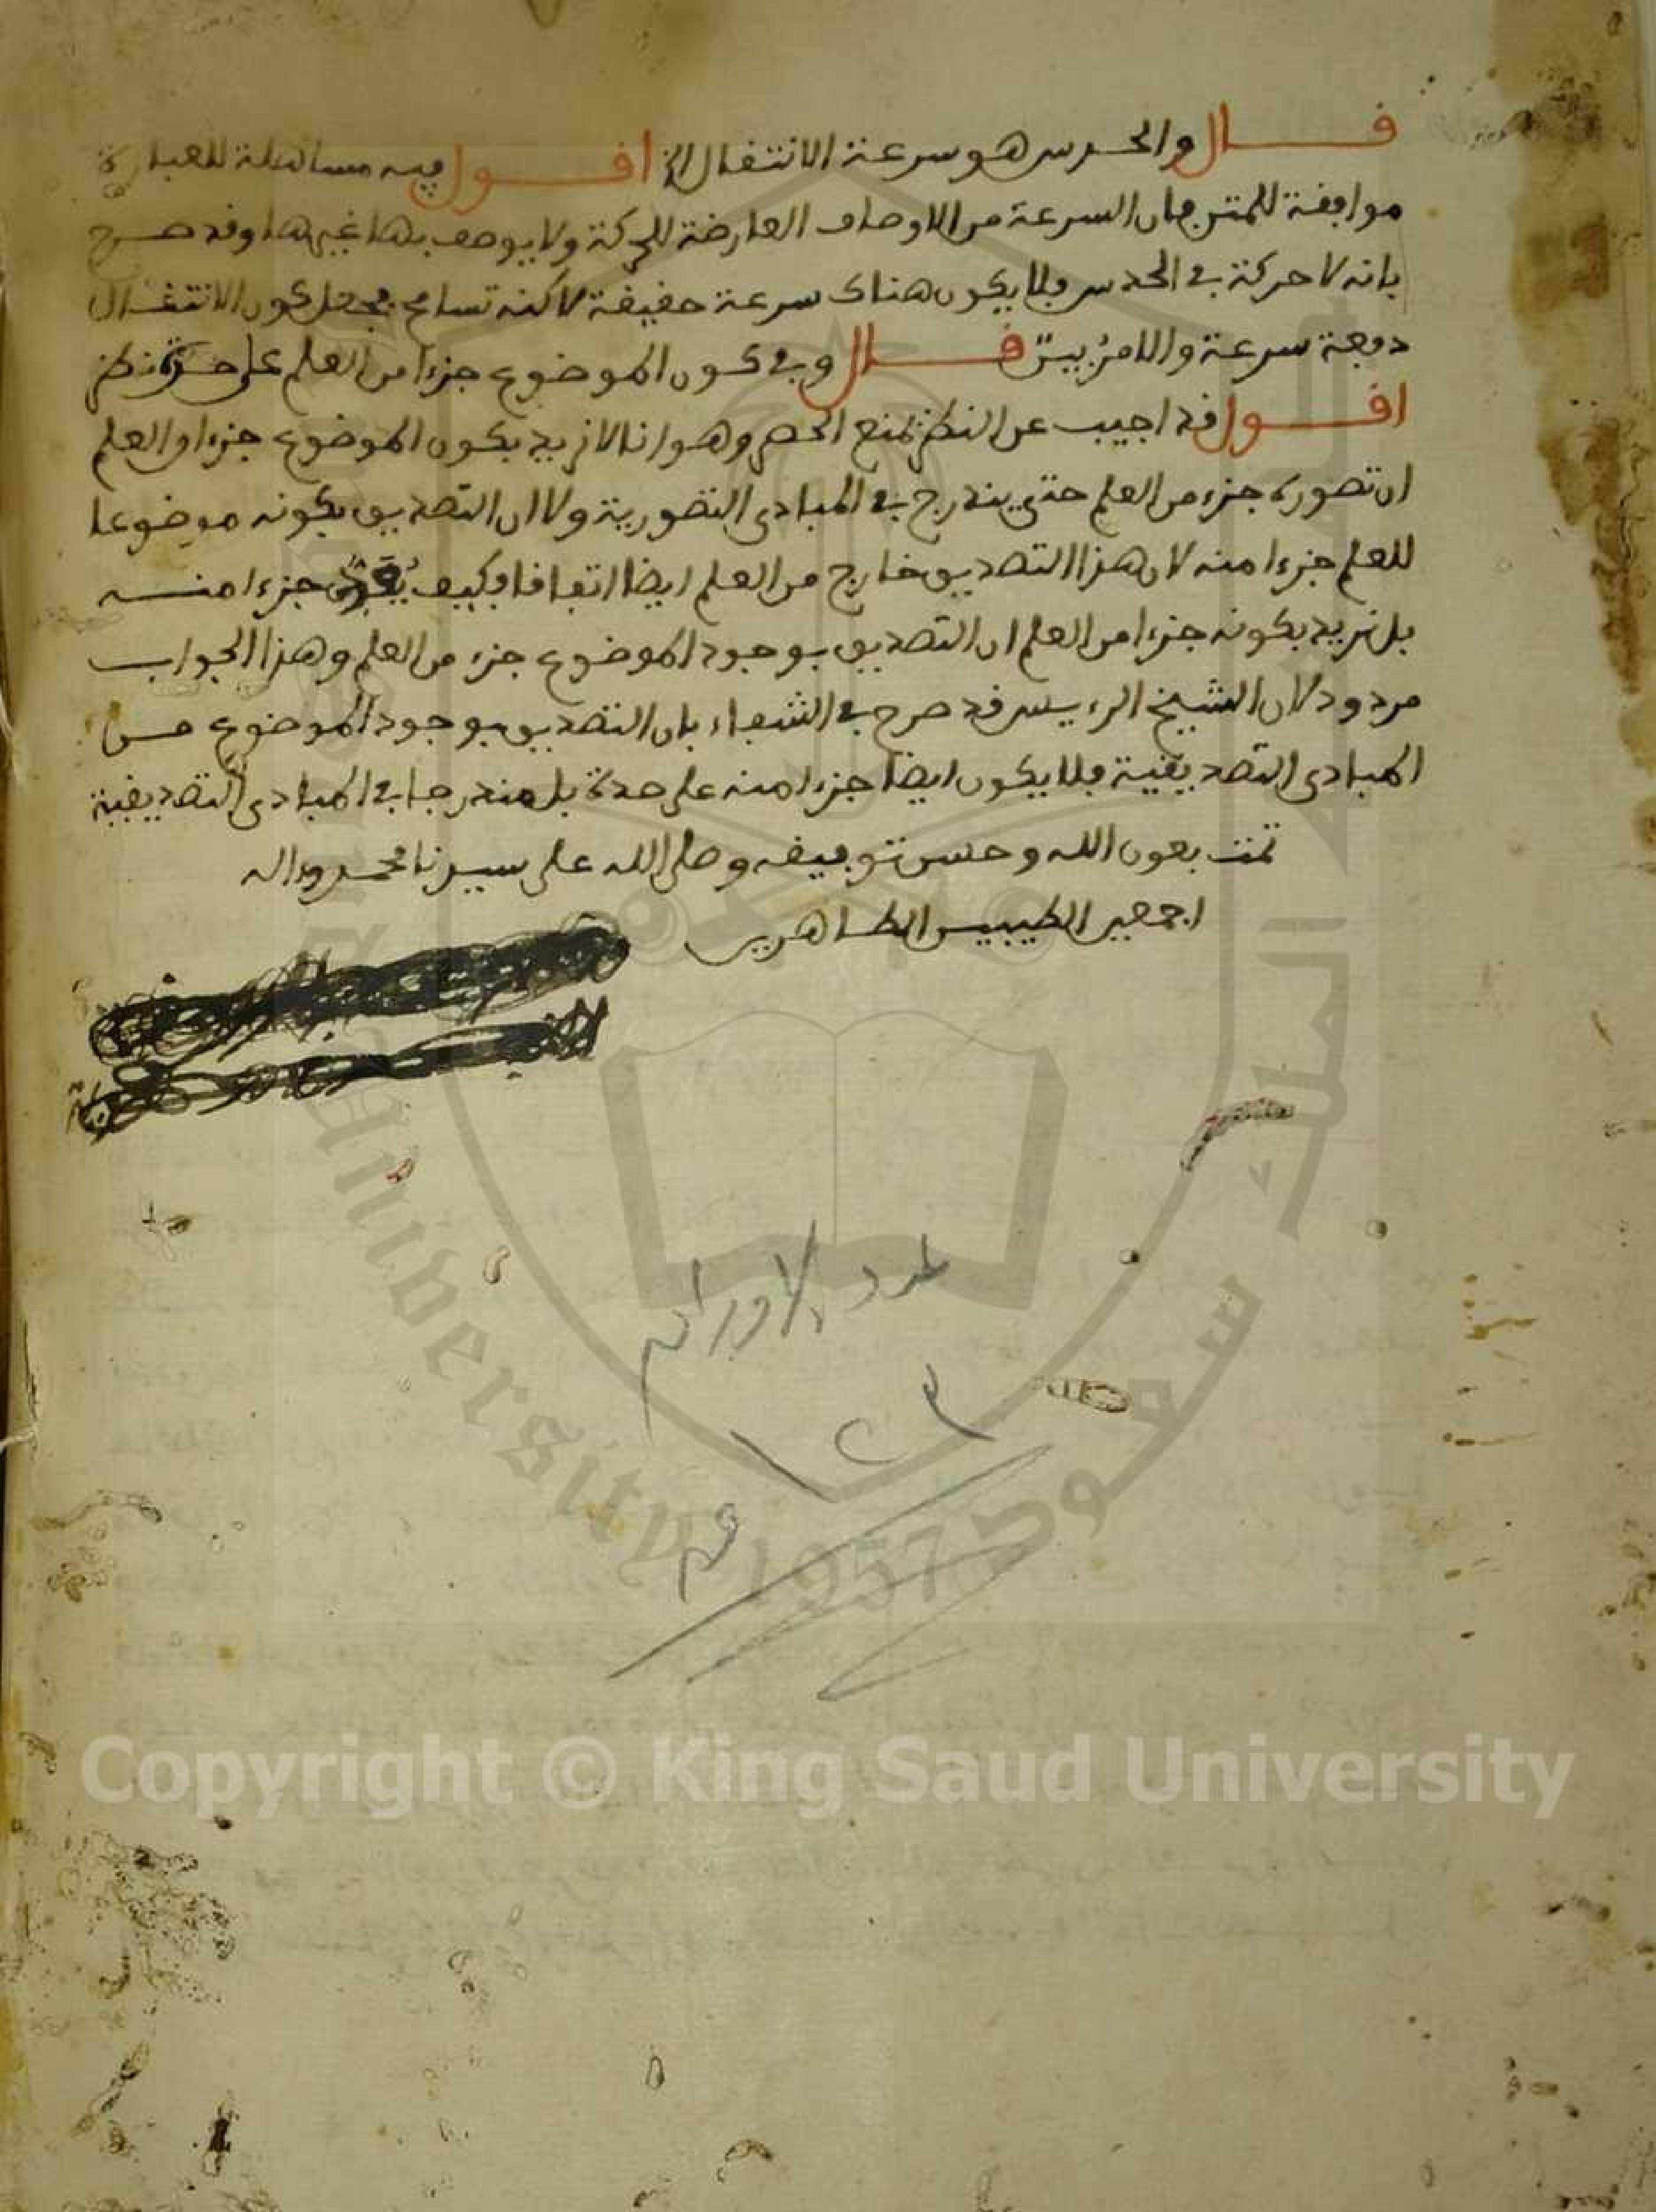 قال والحدس هو سرعة الانتقال الخ اقول فيه مساهلة للعبارة
موافقة للمتن فان السرعة من الاوصاف العارضة للحركة ولا يوصف بها غيرها وقد صرح
بانه لا حركة في الحدس فلا يكون هناك سرعة حقيقة لاكنه تسامح فجعل كون الانتقال
دفعة سرعة والامر بين قال وفي كون الموضوع جزءا من العلم على حدة نظر
اقول قد اجيب عن النظر بمنع الحصر وهو انا لا نريد بكون الموضوع جزءا من العلم
ان تصوره جزء من العلم حتى يندرج في المبادى التصورية ولا ان التصديق بكونه موضوعا
للعلم جزءا منه لان هذا التصديق خارج من العلم ايضا اتفاقا فكيف جزءا منه
بل نريد بكونه جزءا من العلم ان التصديق بوجود الموضوع جزء من العلم وهذا الجواب
مردود لان الشيخ الرءيس قد صرح في الشفاء بان التصديق بوجود الموضوع من
المبادى التصديقية فلا يكون ايضا جزءا منه على حدة بل مندرجا في المبادى التصديقية
تمت بعون الله وحسن توفيقه وصلى الله على سيدنا محمد وءاله
اجمعين الطيبين الطاهرين
عدد الاوراق
١٢٣
ق
Copyright © King Saud University
University 1957
الملك سعود